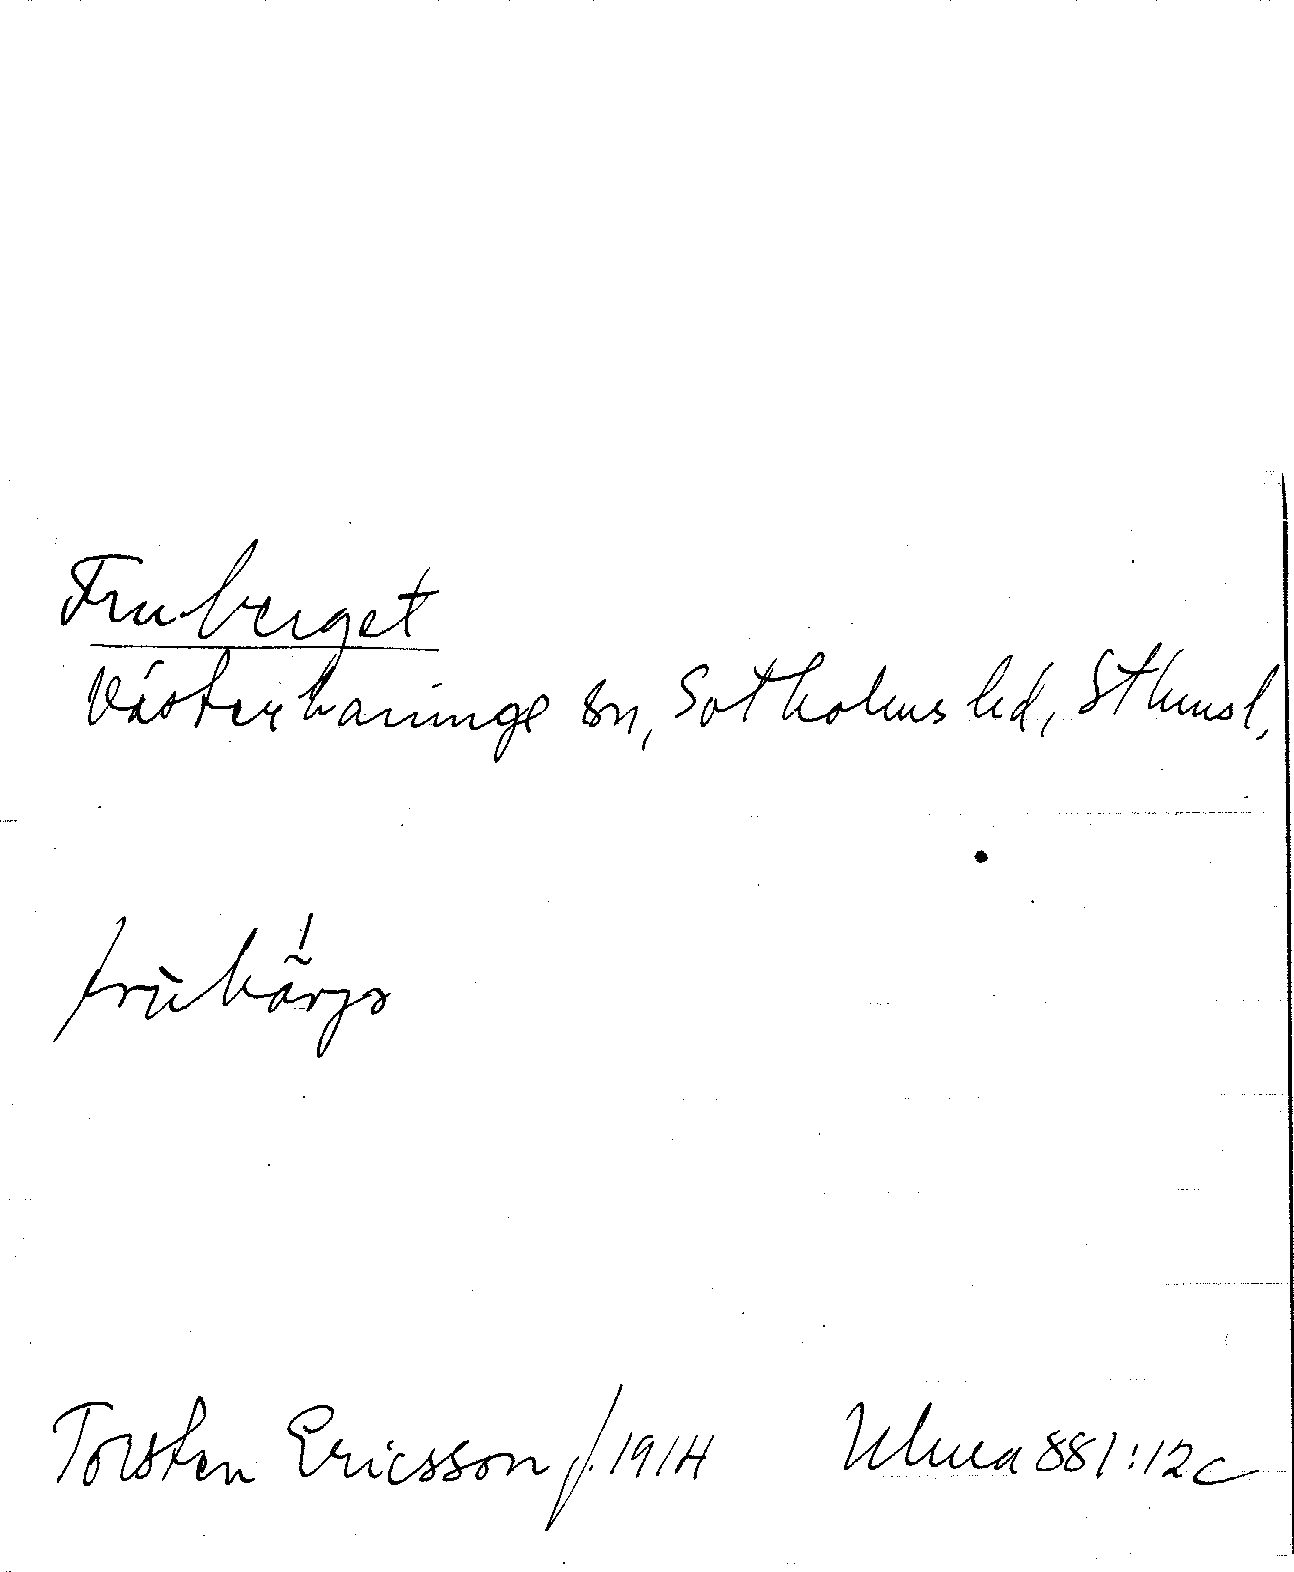 Fruberget
Västerhaninge sn, Sotholms hd, Sthmsl.
frùbärjə
Torsten Ericsson f. 1914 Ulma 881:12c